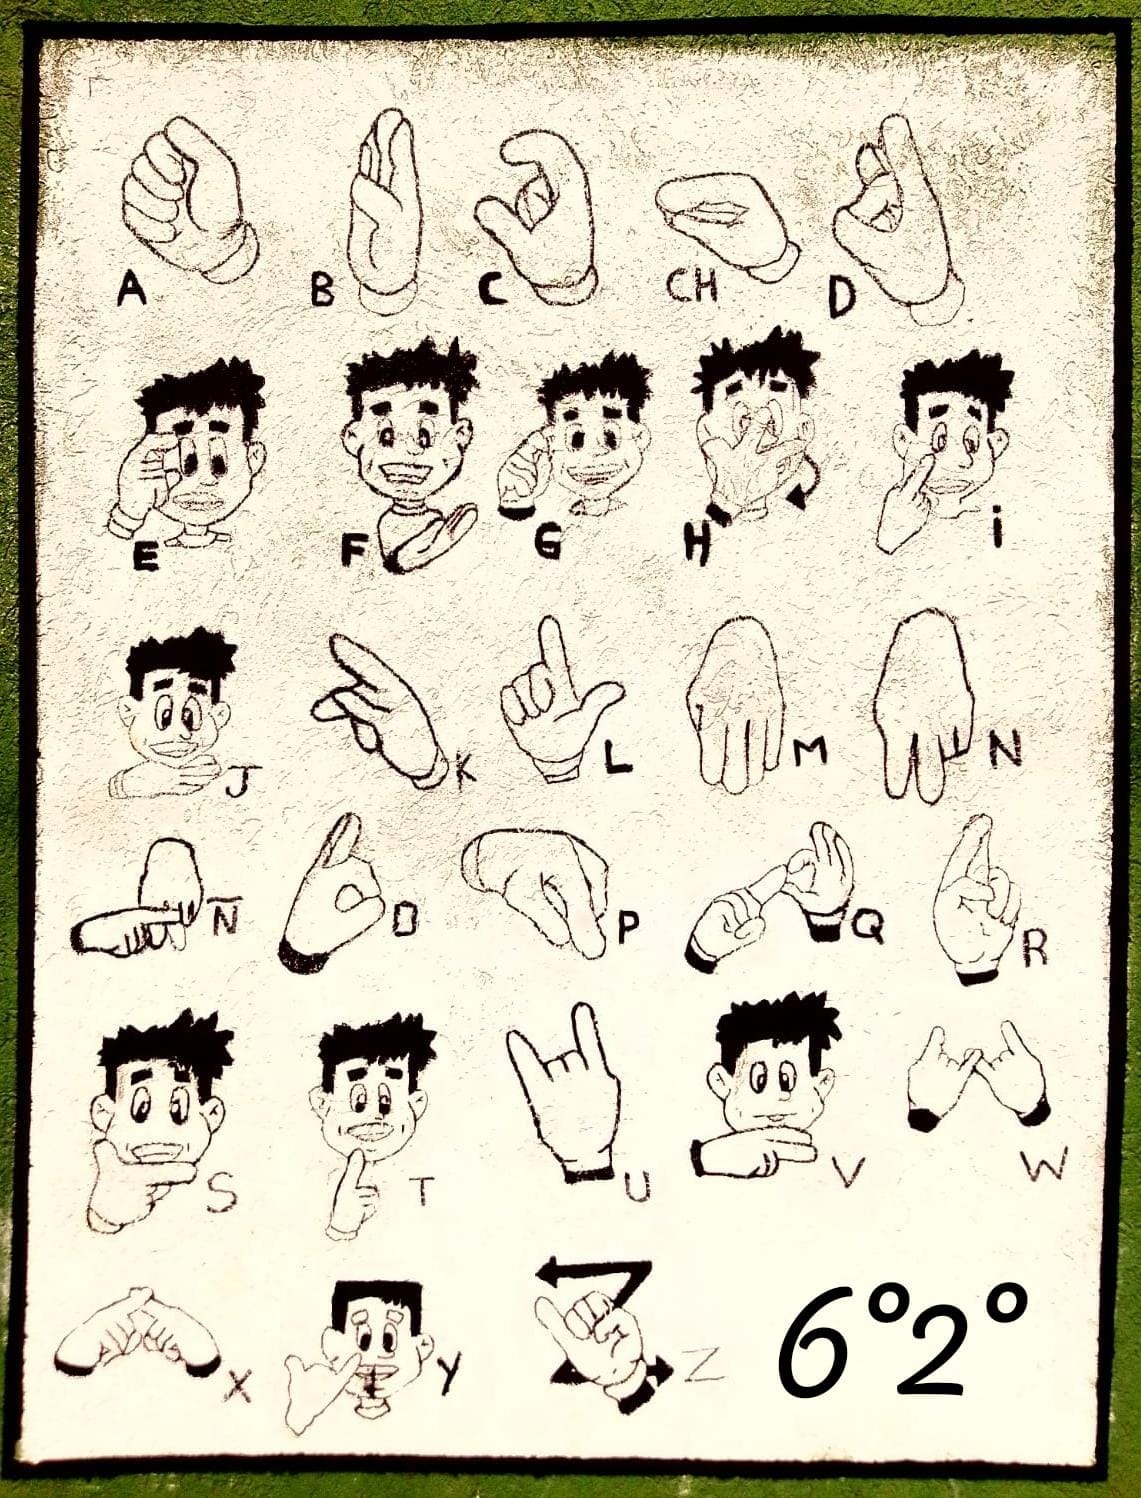 A B C CH D
E F G H i
J K L M N
N̄ O P Q R
S T U V W
X Y Z 6°2°